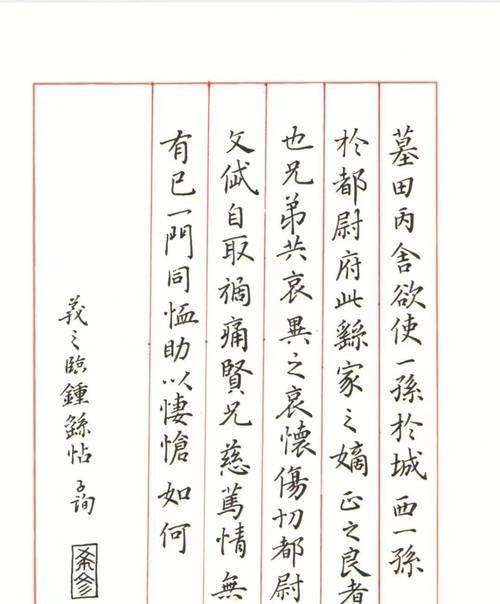 墓田丙舍欲使一孫於城西一孫
於都尉府此繇家之嫡正之良者
也兄弟共哀異之哀懷傷切都尉
文岱自取禍痛賢兄慈篤情無
有已一門同恤助以悽愴如何
羲之臨鍾繇帖 子詢